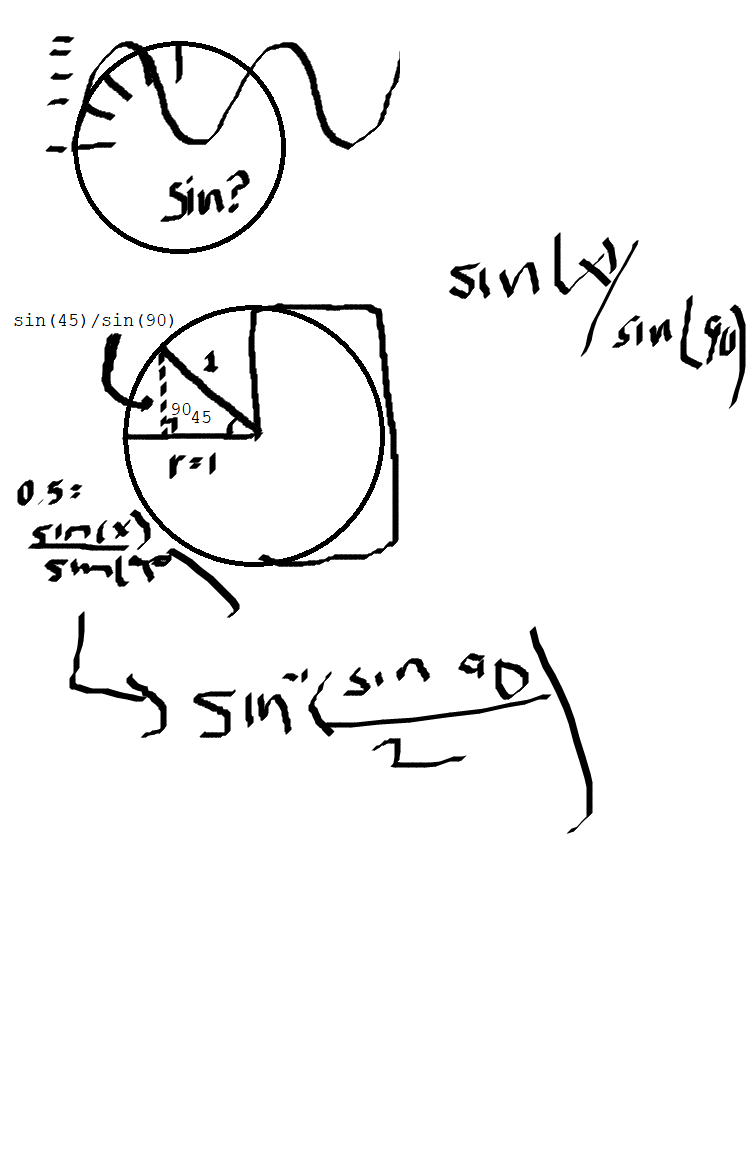 sin?
sin(x)/sin(90)
sin(45)/sin(90)
1
90
45
r=1
0.5=
sin(x)
sin(90
sin⁻¹(sin 90
2
)